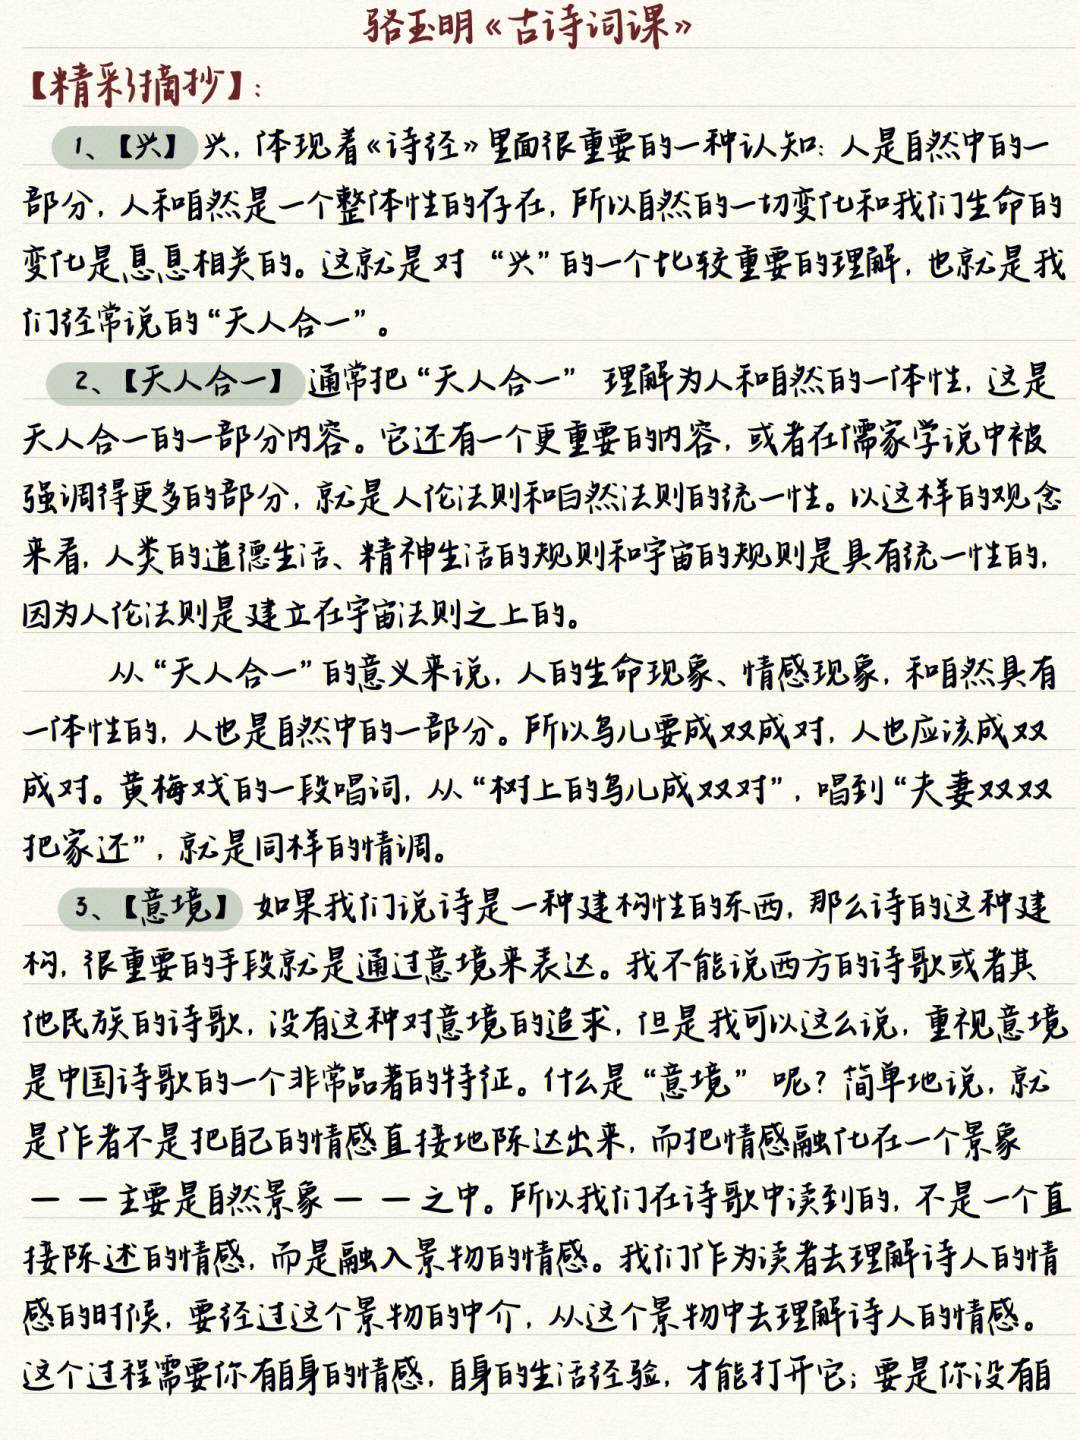 骆玉明《古诗词课》
【精彩摘抄】:
1、【兴】兴，体现着《诗经》里面很重要的一种认知：人是自然中的一
部分，人和自然是一个整体性的存在，所以自然的一切变化和我们生命的
变化是息息相关的。这就是对“兴”的一个比较重要的理解，也就是我
们经常说的“天人合一”。
2、【天人合一】通常把“天人合一”理解为人和自然的一体性，这是
天人合一的一部分内容。它还有一个更重要的内容，或者在儒家学说中被
强调得更多的部分，就是人伦法则和自然法则的统一性。以这样的观念
来看，人类的道德生活、精神生活的规则和宇宙的规则是具有统一性的，
因为人伦法则是建立在宇宙法则之上的。
从“天人合一”的意义来说，人的生命现象、情感现象，和自然具有
一体性的，人也是自然中的一部分。所以鸟儿要成双成对，人也应该成双
成对。黄梅戏的一段唱词，从“树上的鸟儿成双对”，唱到“夫妻双双
把家还”，就是同样的情调。
3、【意境】如果我们说诗是一种建构性的东西，那么诗的这种建
构，很重要的手段就是通过意境来表达。我不能说西方的诗歌或者其
他民族的诗歌，没有这种对意境的追求，但是我可以这么说，重视意境
是中国诗歌的一个非常品著的特征。什么是“意境”呢？简单地说，就
是作者不是把自己的情感直接地陈达出来，而把情感融化在一个景象
——主要是自然景象——之中。所以我们在诗歌中读到的，不是一个直
接陈述的情感，而是融入景物的情感。我们作为读者去理解诗人的情
感的时候，要经过这个景物的中介，从这个景物中去理解诗人的情感。
这个过程需要你有自身的情感，自身的生活经验，才能打开它；要是你没有自